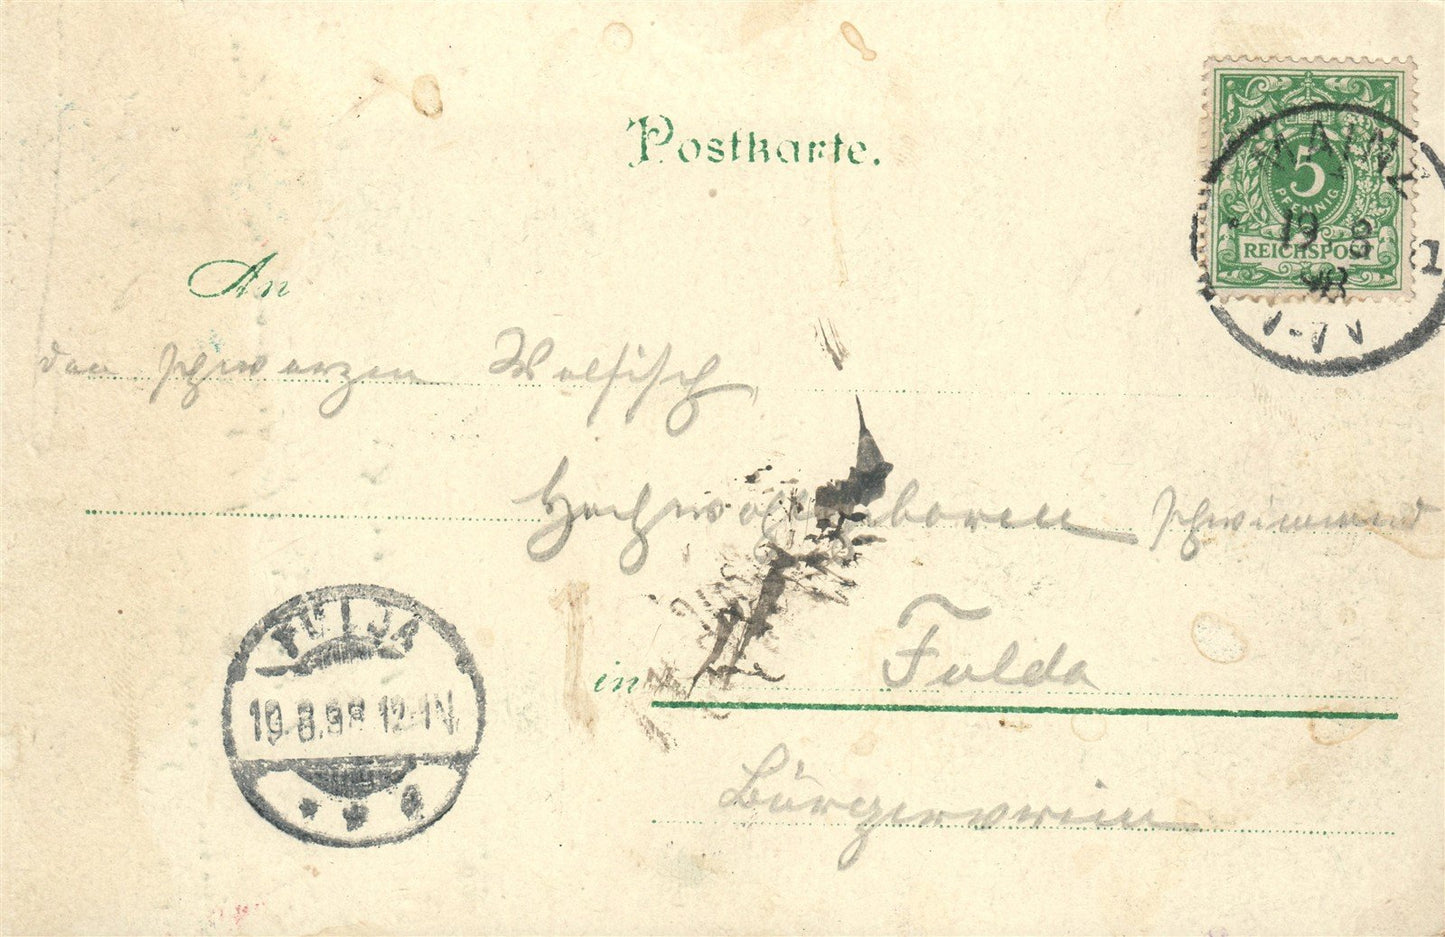 Postkarte.
5
PFENNIG
REICHSPOST
MAINZ
19 8
98
1
An
den schwarzen Walfisch
Hochwohlgeboren schwimmend
in Fulda
Bürgerverein
FULDA
19.8.98 12-1N.